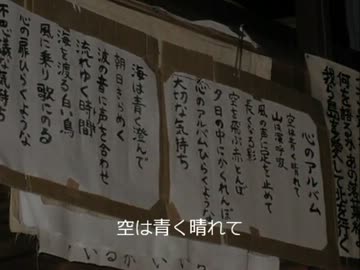 心のアルバム
空は青く晴れて
山は深呼吸
風の声に足を止めて
長くなる影
空を飛ぶ赤とんぼ
夕日の中にかくれんぼ
心のアルバムひらくような
大切な気持ち
海は青く澄んで
朝日きらめく
波の音に声を合わせ
流れゆく時間
海を渡る白い鳥
風に乗り歌にのる
心の扉ひらくような
不思議な気持ち
空は青く晴れて